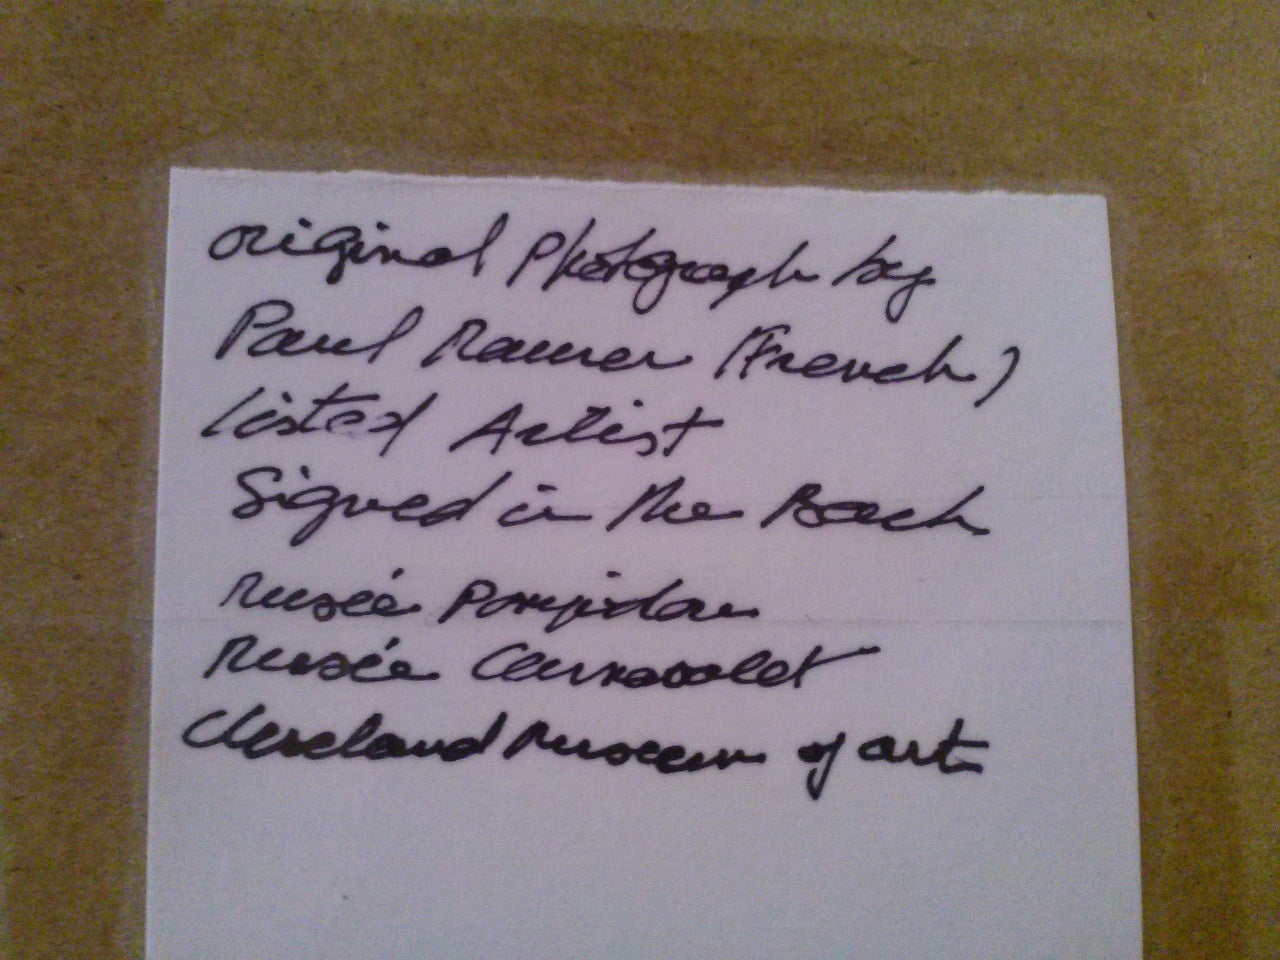 original Photograph by
Paul (French)
listed Artist
Signed in the Back
Musée Pompidou
Musée Carnavalet
Cleveland Museum of art